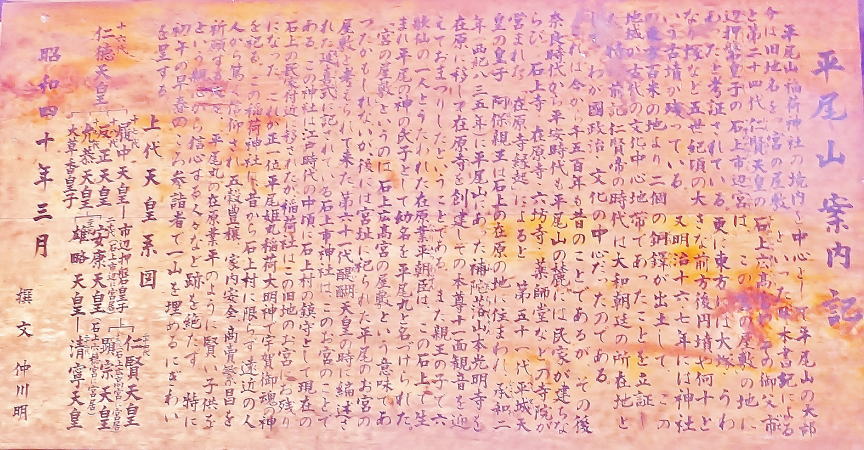 平尾山案内記
平尾山稲荷神社の境内を中心として平尾山の大部
今は旧地名を「宮の屋敷」 日本書紀による
と第二十四代仁賢天皇の石上広高宮 の御父市
辺押磐皇子の石上市辺宮は この宮の屋敷の地に
あったと考証されている。更に東方には大塚 うわ
なり塚など五世紀頃の大きな前方後円墳や何十と
いう古墳が残っている。又明治十六七年には神社
の東方百米の地より二個の銅鐸が出土して この
地域が古代の文化中心地帯であったことを立証し
前記仁賢帝の時代は大和朝廷の所在地と
して わが國政治 文化の中心だったのである。
これは今から千五百年も昔のことであるが その後
奈良時代から平安時代も平尾山の麓には民家が建ちな
らび、石上寺 在原寺 六坊寺 薬師堂などの寺院が
営まれた。在原寺縁起によると 第五十一代平城天
皇の皇子 阿保親王は石上の在原の地に住まわれ 承和二
年西紀八三五年に平尾山にあった補陀落山本光明寺を
在原に移して在原寺を創建しての本尊十一面観音を迎
えておまつりしたということである。また親王の子で六
歌仙の一人とうたわれた在原業平朝臣は、この石上で生
まれ平尾の神の氏子として幼名を平尾丸と名づけられた。
「宮の屋敷」というのは「石上広高宮の屋敷」という意味であ
ったかもしれないが、後には宮址に祀られた平尾のお宮の
屋敷と考えられて来た。第六十一代醍醐天皇の時に編述さ
れた延喜式に記されている石上市神社は、このお宮のことで
ある。この神社は江戸時代の中頃に石上村の鎮守として現在の
石上の 付近に移されたが、稲荷社はこの旧地のお宮に残り
になった。これが正一位平尾姫丸稲荷大明神で宇賀御魂の神
を祀る。この稲荷神社は昔から石上村に限らず遠近の人
人から篤く信仰され 五穀豊穣 家内安全 商売繁昌を
祈願する 平尾丸の在原業平のように賢い子供を
という親心から信心する人々など跡を絶たず 特に
初午の早春のころ参詣者で一山を埋めるにぎわい
を呈する。
上代天皇系図
十六代
仁徳天皇
十七代
履中天皇―市辺押磐皇子
反正天皇
允恭天皇
大草香皇子
安康天皇
雄略天皇―清寧天皇
仁賢天皇
顕宗天皇
昭和四十年三月
撰文 仲川明